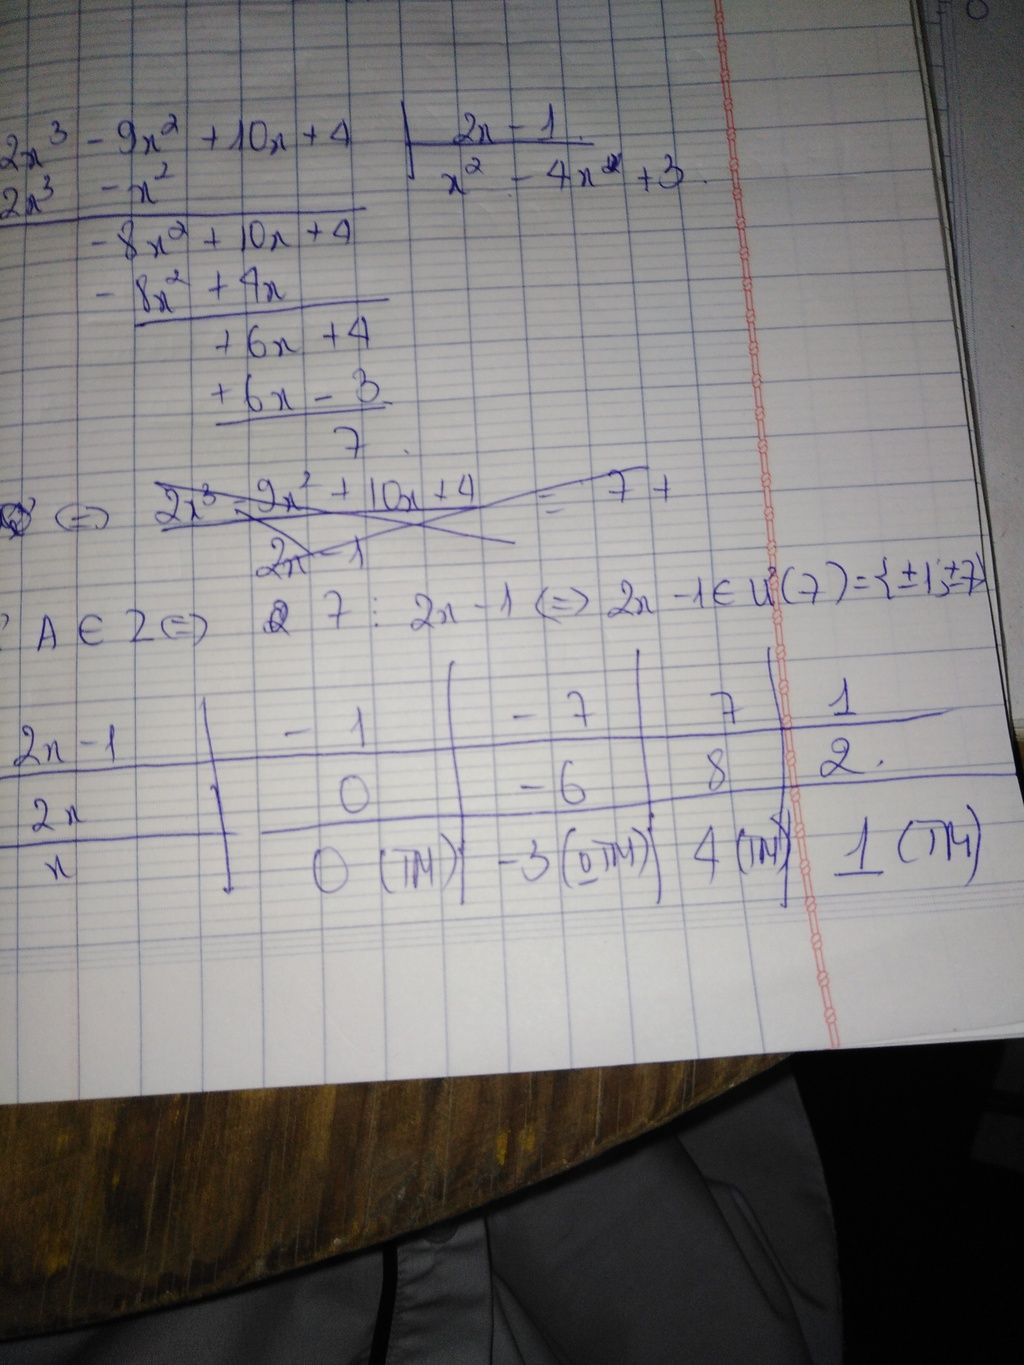 2x³ - 9x² + 10x + 4 | 2x - 1
2x³ - x² | x² - 4x + 3
- 8x² + 10x + 4
- 8x² + 4x
+ 6x + 4
+ 6x - 3
7
⇔ 2x³ - 9x² + 10x + 4 = 7 +
2x - 1
A ∈ Z ⇔ 7 ⋮ 2x - 1 ⇔ 2x - 1 ∈ Ư(7) = {±1; ±7}
2x - 1 | - 1 | - 7 | 7 | 1
2x | 0 | - 6 | 8 | 2.
x | 0 (TM) | - 3 (0TM) | 4 (TM) | 1 (TM)